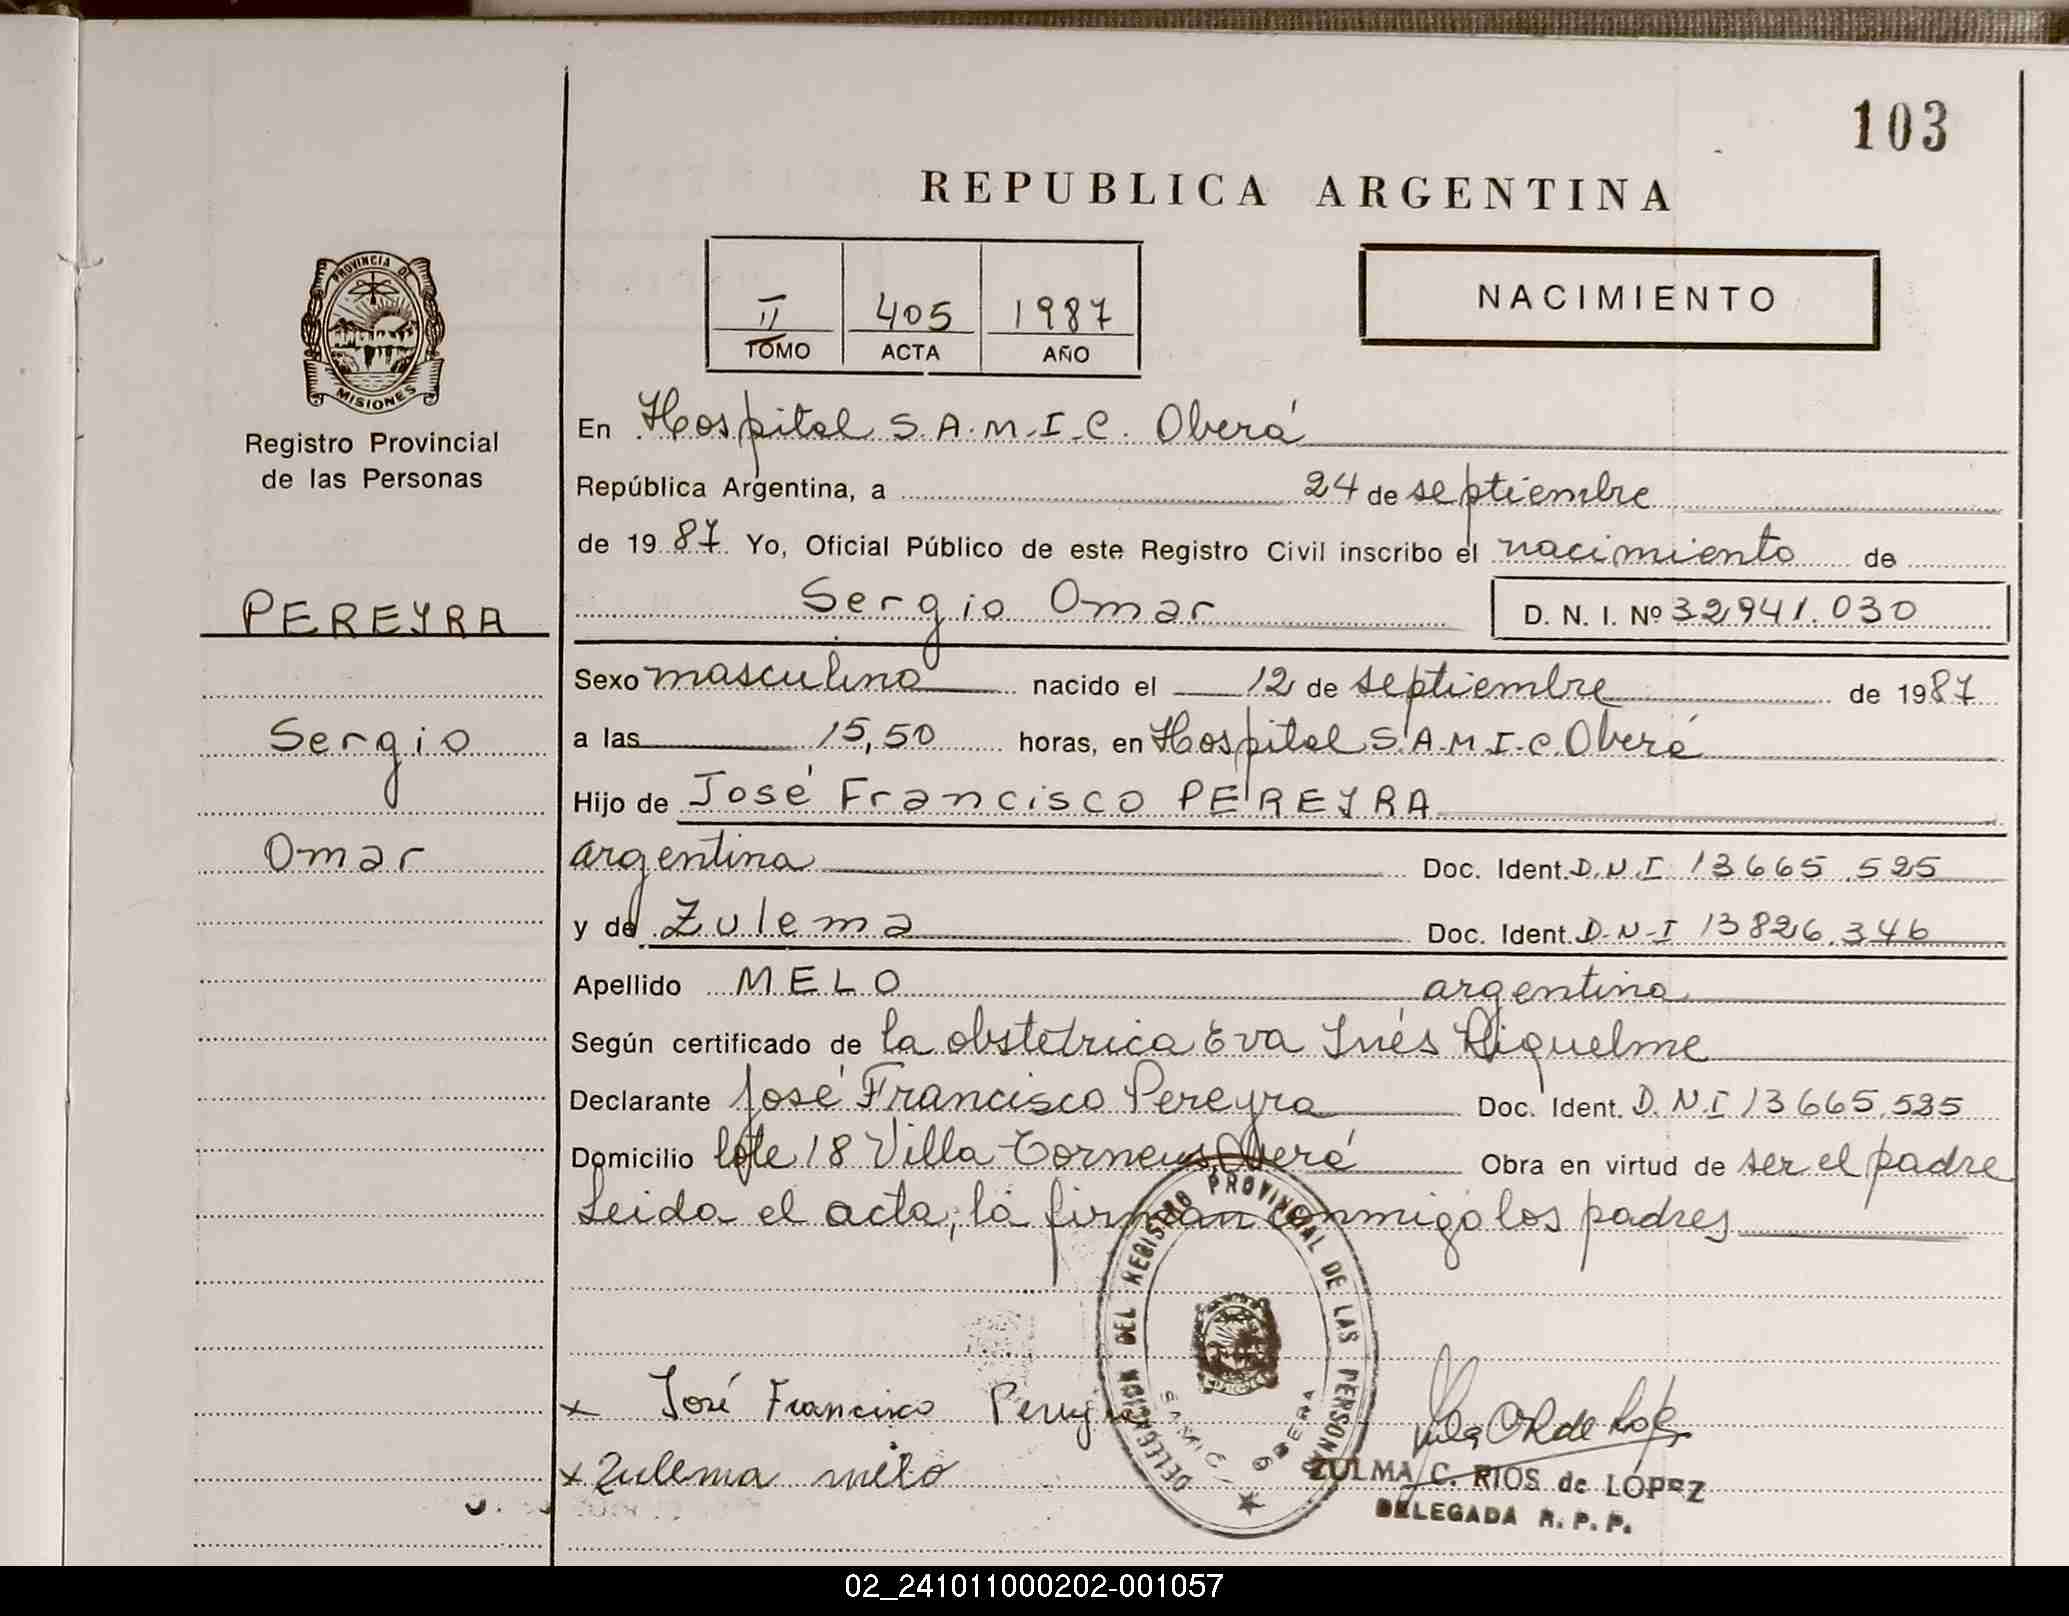 103
REPUBLICA ARGENTINA
II 405 1987
TOMO ACTA AÑO
NACIMIENTO
PROVINCIA DE
MISIONES
Registro Provincial
de las Personas
PEREYRA
Sergio
Omar
En Hospital S.A.M.I.C. Oberá
República Argentina, a 24 de septiembre
de 1987 Yo, Oficial Público de este Registro Civil inscribo el nacimiento de
Sergio Omar D. N. I. Nº 32941.030
Sexo masculino nacido el 12 de septiembre de 1987
a las 15,50 horas, en Hospital S.A.M.I.C. Oberá
Hijo de José Francisco PEREYRA
argentina Doc. Ident. D.N.I 13665.525
y de Zulema Doc. Ident. D-N-I 13826.346
Apellido MELO argentina
Según certificado de la obstetrica Eva Inés Riquelme
Declarante José Francisco Pereyra Doc. Ident. D.N.I 13665.525
Domicilio lote 18 Villa Oberá Obra en virtud de ser el padre
Leida el acta, la firman conmigo los padres
DELEGACION DEL REGISTRO PROVINCIAL DE LAS PERSONAS
SAMIC OBERA
x José Francisco Pereyra
x Zulema melo
ZULMA C. RIOS de LÓPEZ
DELEGADA R. P. P.
02_241011000202-001057